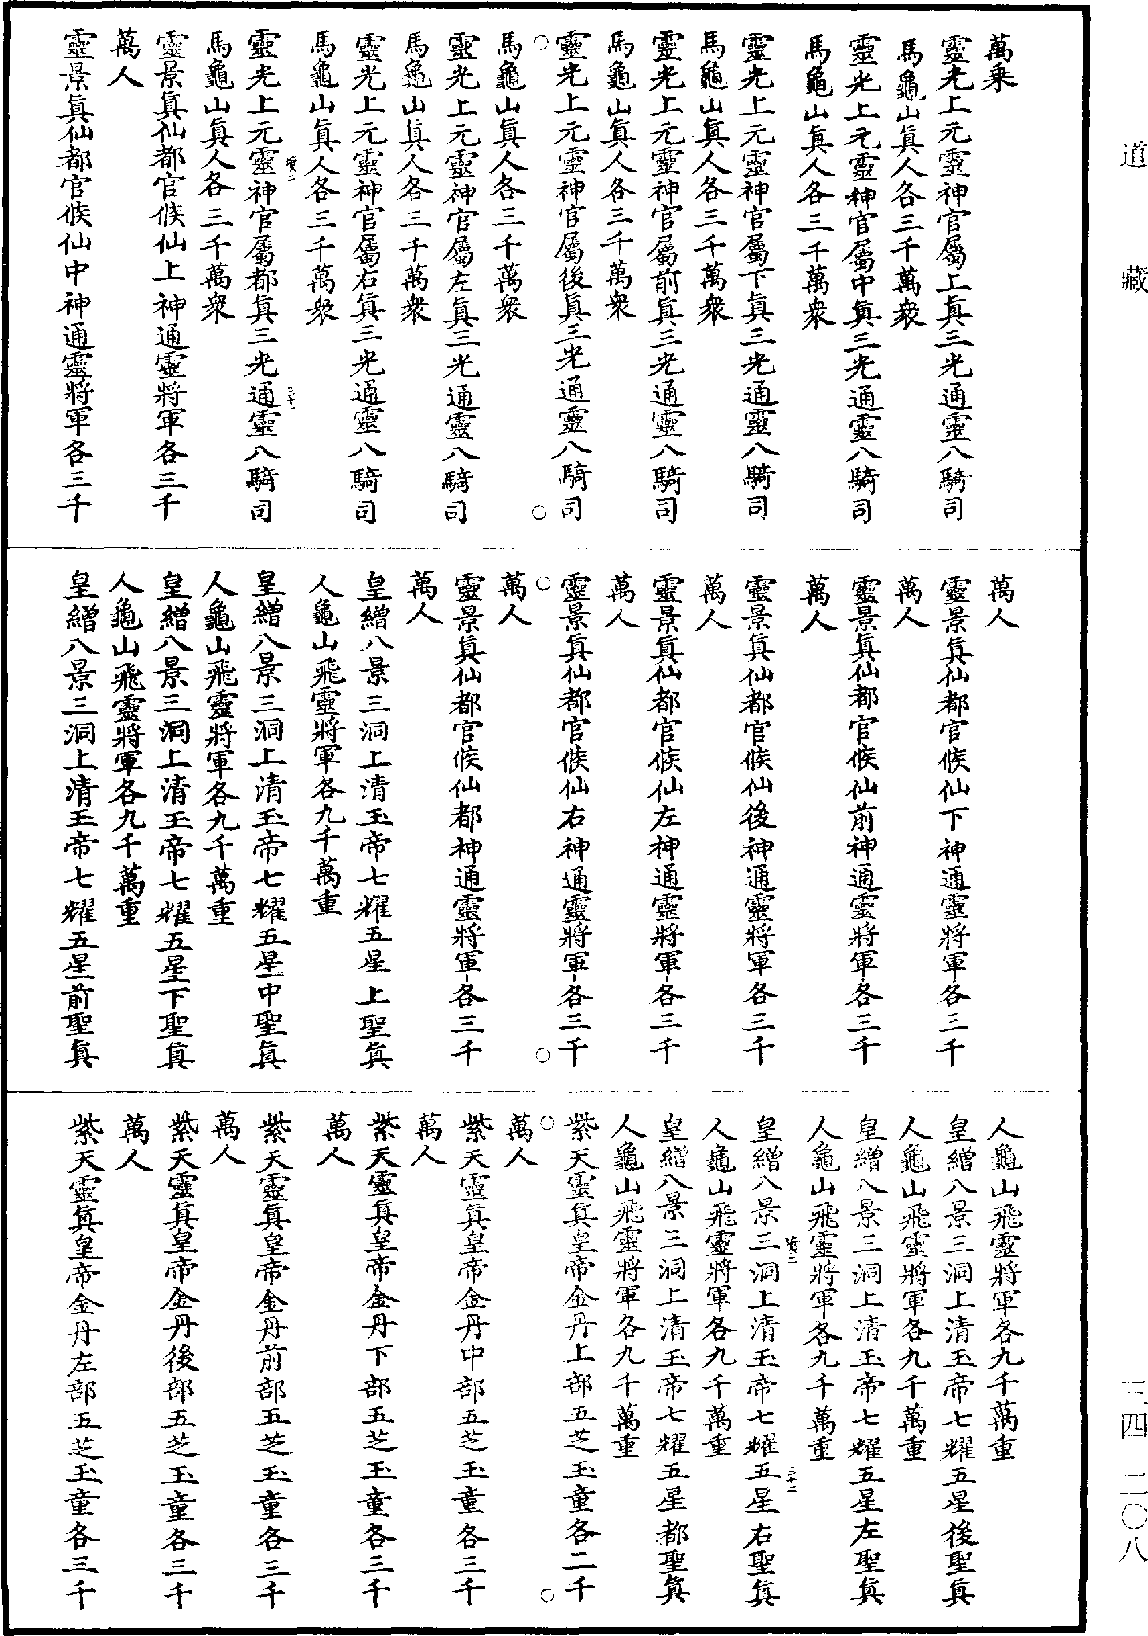 道藏
三四 二〇八
萬乘
靈光上元靈神官屬上真三光通靈八騎司
馬龜山真人各三千萬衆
靈光上元靈神官屬中真三光通靈八騎司
馬龜山真人各三千萬衆
靈光上元靈神官屬下真三光通靈八騎司
馬龜山真人各三千萬衆
靈光上元靈神官屬前真三光通靈八騎司
馬龜山真人各三千萬衆
靈光上元靈神官屬後真三光通靈八騎司
馬龜山真人各三千萬衆
靈光上元靈神官屬左真三光通靈八騎司
馬龜山真人各三千萬衆
靈光上元靈神官屬右真三光通靈八騎司
馬龜山真人各三千萬衆
靈光上元靈神官屬都真三光通靈八騎司
馬龜山真人各三千萬衆
靈景真仙都官候仙上神通靈將軍各三千
萬人
靈景真仙都官候仙中神通靈將軍各三千
萬人
靈景真仙都官候仙下神通靈將軍各三千
萬人
靈景真仙都官候仙前神通靈將軍各三千
萬人
靈景真仙都官候仙後神通靈將軍各三千
萬人
靈景真仙都官候仙左神通靈將軍各三千
萬人
靈景真仙都官候仙右神通靈將軍各三千
萬人
靈景真仙都官候仙都神通靈將軍各三千
萬人
皇繒八景三洞上清玉帝七耀五星上聖真
人龜山飛靈將軍各九千萬重
皇繒八景三洞上清玉帝七耀五星中聖真
人龜山飛靈將軍各九千萬重
皇繒八景三洞上清玉帝七耀五星下聖真
人龜山飛靈將軍各九千萬重
皇繒八景三洞上清玉帝七耀五星前聖真
人龜山飛靈將軍各九千萬重
皇繒八景三洞上清玉帝七耀五星後聖真
人龜山飛靈將軍各九千萬重
皇繒八景三洞上清玉帝七耀五星左聖真
人龜山飛靈將軍各九千萬重
皇繒八景三洞上清玉帝七耀五星右聖真
人龜山飛靈將軍各九千萬重
皇繒八景三洞上清玉帝七耀五星都聖真
人龜山飛靈將軍各九千萬重
紫天靈真皇帝金丹上部五芝玉童各二千
萬人
紫天靈真皇帝金丹中部五芝玉童各三千
萬人
紫天靈真皇帝金丹下部五芝玉童各三千
萬人
紫天靈真皇帝金丹前部五芝玉童各三千
萬人
紫天靈真皇帝金丹後部五芝玉童各三千
萬人
紫天靈真皇帝金丹左部五芝玉童各三千